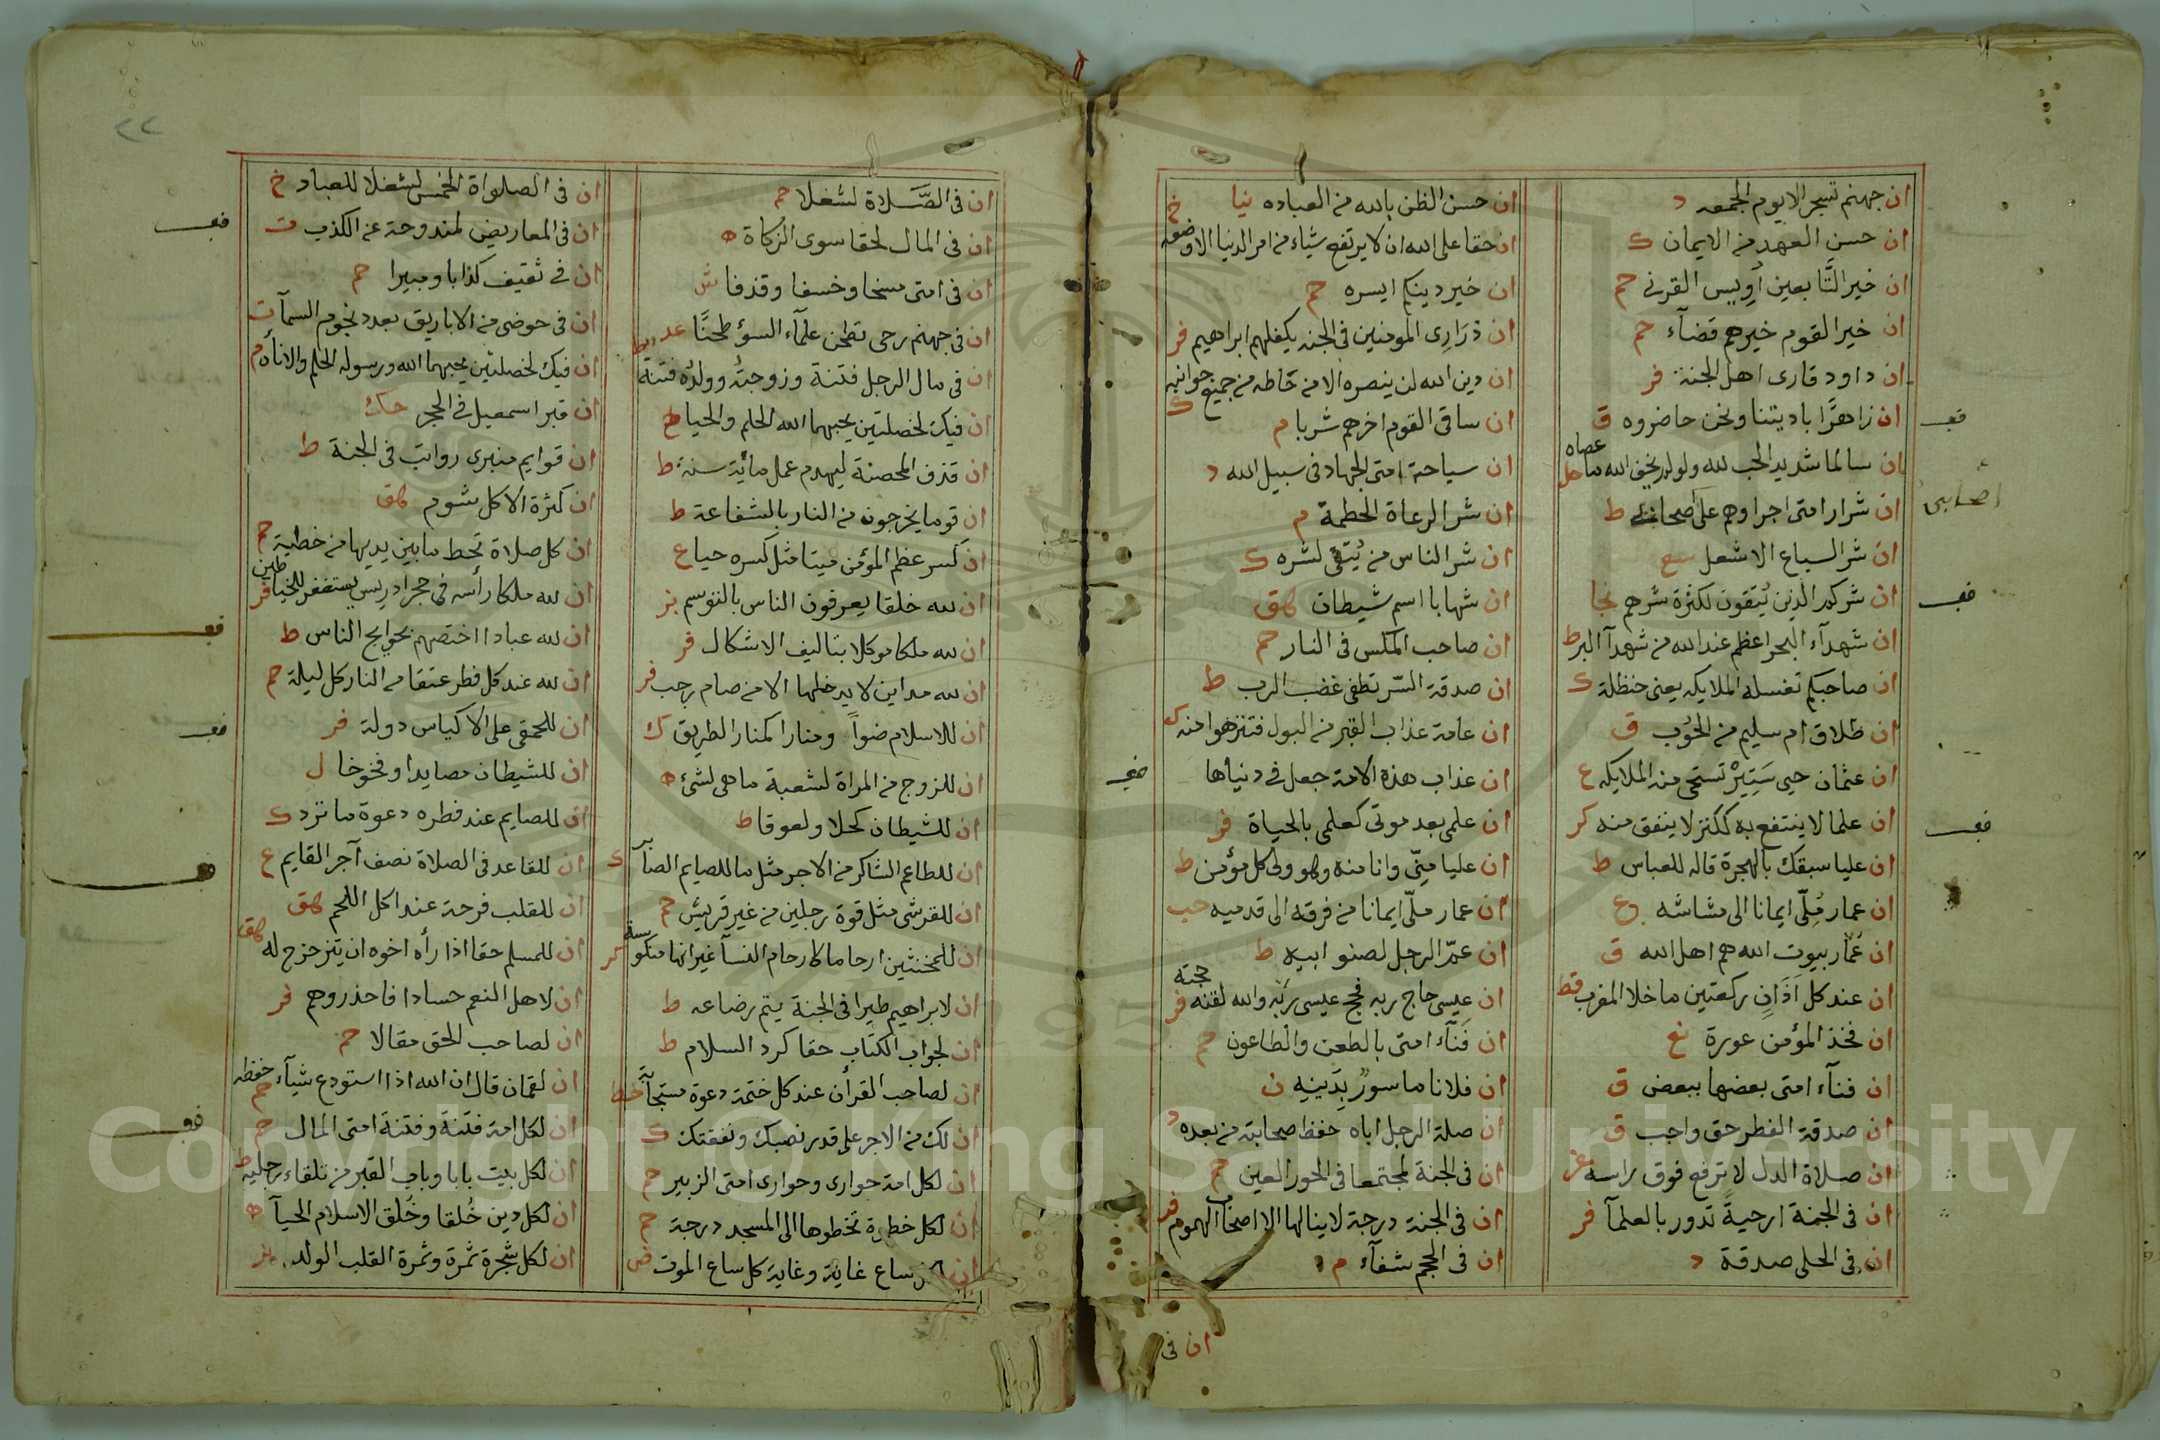 ان جهنم تسجر الا يوم الجمعه د
ان حسن العهد من الايمان ك
ان خير التابعين أويس القرني حم
ان خير القوم خيرهم قضآء حم
ان داود قارى اهل الجنة فر
ان زاهرًا باديتنا ونحن حاضروه ق
ان سالما شديد الحب لله ولو لم يخف الله ما عصاه حل
ان شرار امتى اجراوهم على صحابتي ط
اصحابي
ان شر السباع الاشعل سع
ان شركم الذين يُتقون لكثرة شرهم نجا
ان شهدآء البحر اعظم عند الله من شهدآ البر ط
ان صاحبكم تغسله الملايكه يعنى حنظلة ك
ان طلاق ام سليم من الحُوب ق
ان عثمان حيي ستير تستحى منه الملايكه ع
ان علما لا ينتفع به ككنز لا ينفق منه كر
ان عليا سبقك بالهجرة قاله للعباس ط
ان عمار مُلّى ايمانا الى مشاشه ع
ان عُمّار بيوت الله هم اهل الله ق
ان عند كل اذانٍ ركعتين ما خلا المغرب قط
ان فخذ المؤمن عورة نع
ان فنآء امتى بعضها ببعض ق
ان صدقة الفطر حق واجب ق
ان صلاة الدل لا ترفع فوق راسه عز
ان فى الجنة ارحيةً تدور بالعلمآ فر
ان فى الحلى صدقة د
ان حسن الظن بالله من العباده نيا
ان حقا على الله ان لا يرتفع شياء من امر الدنيا الا وضعه خ
ان خير دينكم ايسره حم
ان ذرَارِى المومنين فى الجنه يكفلهم ابراهيم فر
ان دين الله لن ينصره الا من حاطه من جميع جوانبه ك
ان ساقى القوم اخرهم شربا م
ان سياحة امتى الجهاد فى سبيل الله د
ان شر الرعاة الحطمة م
ان شر الناس من يُتقى لشره ك
ان شهابا اسم شيطان هق
ان صاحب المكس فى النار حم
ان صدقة السّر تطفى غضب الرب ط
ان عامة عذاب القبر من البول فتنزهوا منه ك
ان عذاب هذه الامة جعل فى دنياها
ان علمى بعد موتى كعلمى بالحياة فر
ان عليا منّى وانا منه وهو ولى كل مؤمن ط
ان عمار ملّى ايمانا من فرقه الى قدميه حب
ان عمّ الرجل لصنو ابيه ط
ان عيسى حاج ربه فحج عيسى ربّه والله لقنه حجته فر
ان فَنآء امتى بالطعن والطاعون حم
ان فلانا ماسورٌ بِدَينِهِ ن
ان صلة الرجل اباه حفظ صحابته من بعده د
ان فى الجنة لمجتمعا فى الحور العين حم
ان فى الجنة درجة لا ينالها الا اصحاب الهموم فر
ان فى الحجم شفآء م
ان فى
ان فى الصَّلاة لشغلا حم
ان فى المال لحقا سوى الزكاة ه
ان فى امتى مسخا وخسفا وقذفا ش
ان فى جهنم رحى تطحن علمآء السؤ طحنًا عد
ان فى مال الرجل فتنة وزوجته وولده فتنة ط
ان فيك لخصلتين يحبهما الله الحلم والحيا ه
ان قذف المحصنة ليهدم عمل مائة سنة ط
ان قوما يخرجون من النار بالشفاعة ط
ان كسر عظم المؤمن ميتا مثل كسره حيا ع
ان لله خلقا يعرفون الناس بالتوسم بز
ان لله ملكا موكلا بتاليف الاشكال فر
ان لله مداين لا يدخلها الا من صام رجب فر
ان للاسلام ضوآً ومنارا كمنار الطريق ك
ان للزوج من المراة لشعبة ما هى لشئ ه
ان للشيطان كحلا ولعوقا ط
ان للطاعم الشاكر من الاجر مثل ما للصايم الصابر ك
ان للقرشى مثل قوة رجلين من غير قريش حم
ان للمخنثين ارحاما كارحام النسآ غير انها منكوسة كر
ان لابراهيم ظيرا فى الجنة يتم رضاعه ط
ان لجواب الكتاب حقا كرد السلام ط
ان لصاحب القرآن عند كل ختمة دعوة مستجابة خط
ان لك من الاجر على قدر نصبك ونفقتك ك
ان لكل امة حوارى وحوارى امتى الزبير حم
ان لكل خطوة تخطوها الى المسجد درجة حم
ان لكل ساع غاية وغاية كل ساع الموت ض
٢٢
ان فى الصلواة الخمس لشغلا للعباد خ
ان فى المعاريض لمندوحة عن الكذب ت
ان فى ثقيف كذابا ومبيرا حم
ان فى حوضى من الاباريق بعدد نجوم السمآ ت
ان فيك لخصلتين يحبهما الله ورسوله الحلم والاناه م
ان قبر اسمعيل فى الحجر حاك
ان قوايم منبرى رواتب فى الجنة ط
ان كثرة الاكل شوم هق
ان كل صلاة تحط ما بين يديها من خطية حم
ان لله ملكا رأسه فى حجر ادريس يستغفر للخياطين فر
ان لله عبادا اختصهم بحوايج الناس ط
ان لله عند كل فطر عتقا من النار كل ليلة حم
ان للحمقى على الاكياس دولة فر
ان للشيطان مصايدا وفخوخا ل
ان للصايم عند فطره دعوة ما ترد ك
ان للقاعد فى الصلاة نصف آجر القايم ع
ان للقلب فرحة عند اكل اللحم هق
ان للمسلم حقا اذا رأه اخوه ان يتزحزح له هق
ان لاهل النعم حسادا فاحذروهم فر
ان لصاحب الحق مقالا حم
ان لقمان قال ان الله اذا استودع شيآء حفظه حم
ان لكل امة فتنة وفتنة امتى المال حم
ان لكل بيت بابا وباب القبر من تلقاء رجليه ط
ان لكل دين خُلقا وخُلق الاسلام الحيآ ه
ان لكل شجرة ثمرة وثمرة القلب الولد بز
Copyright © King Saud University